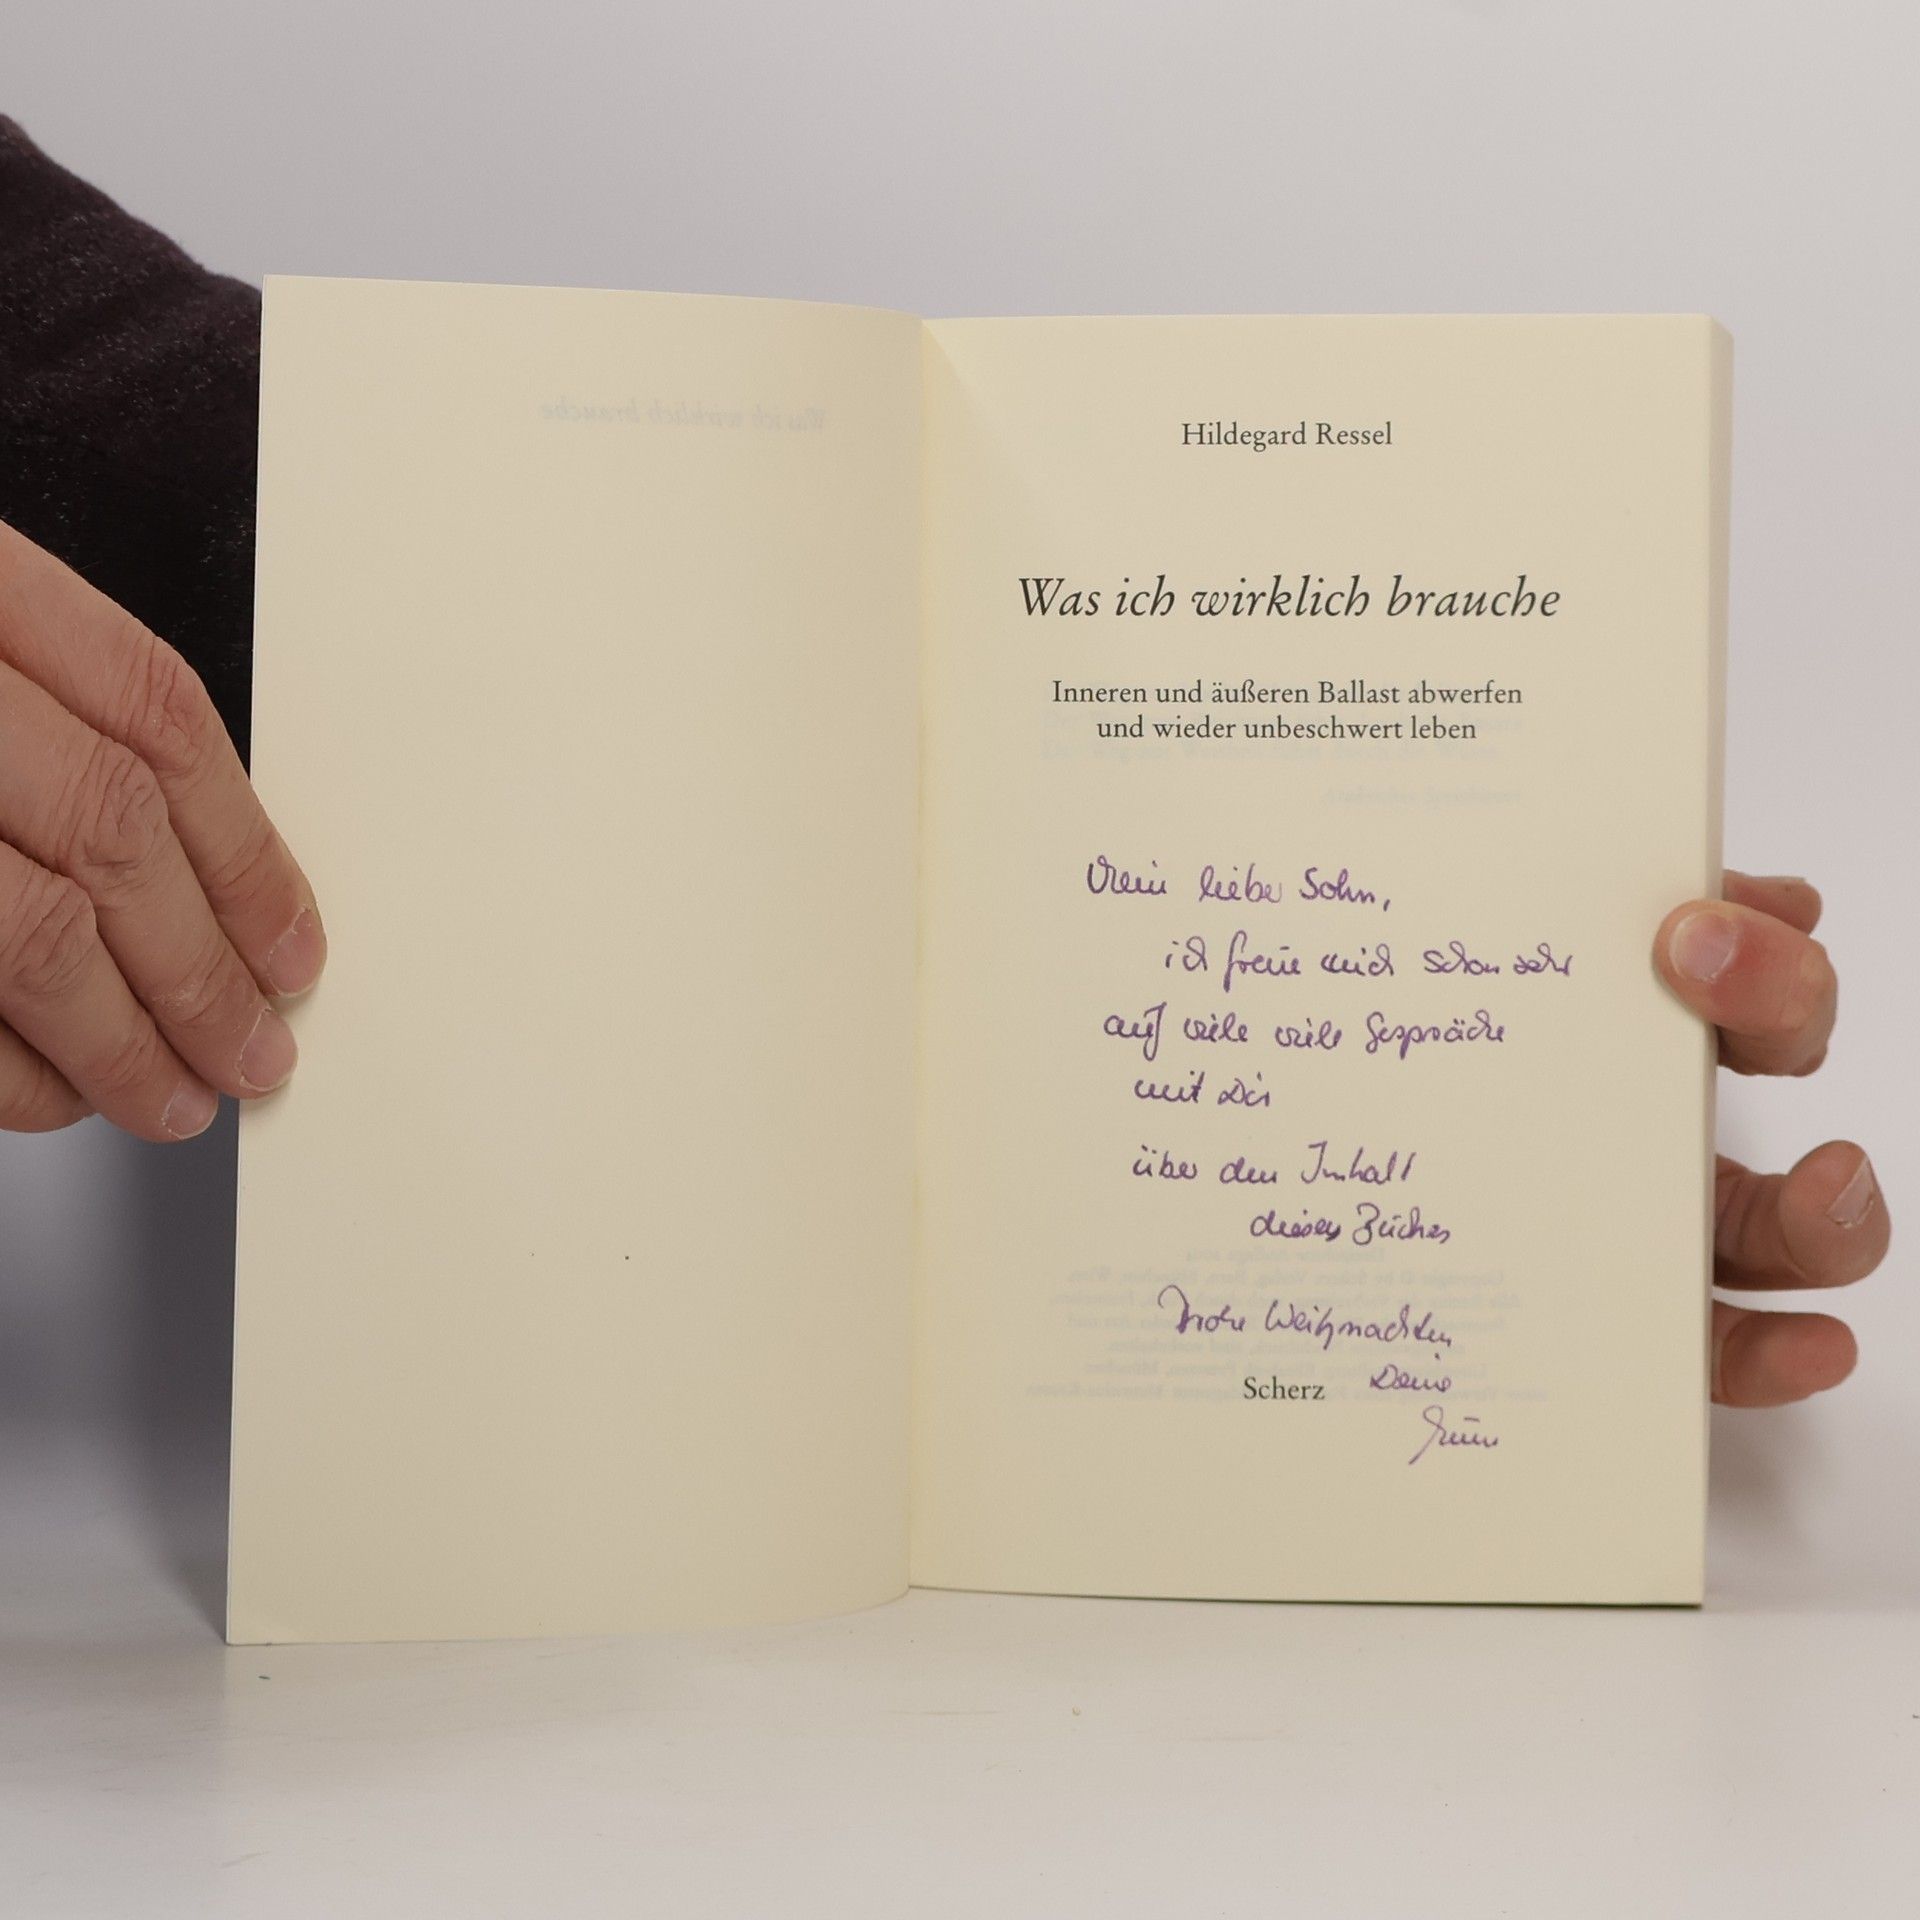 Was ich wirklich brauche
Hildegard Ressel
Was ich wirklich brauche
Inneren und äußeren Ballast abwerfen
und wieder unbeschwert leben
Mein lieber Sohn,
ich freue mich schon sehr
auf viele viele Gespräche
mit Dir
über den Inhalt
dieses Buches
Frohe Weihnachten
Deine
Scherz